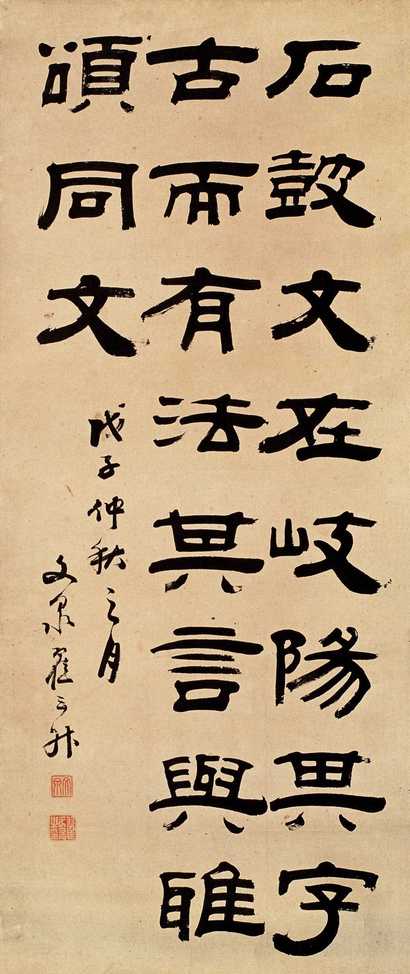 石鼓文在岐陽其字
古而有法其言與雅
頌同文
戊子仲秋之月
文泉翟云升